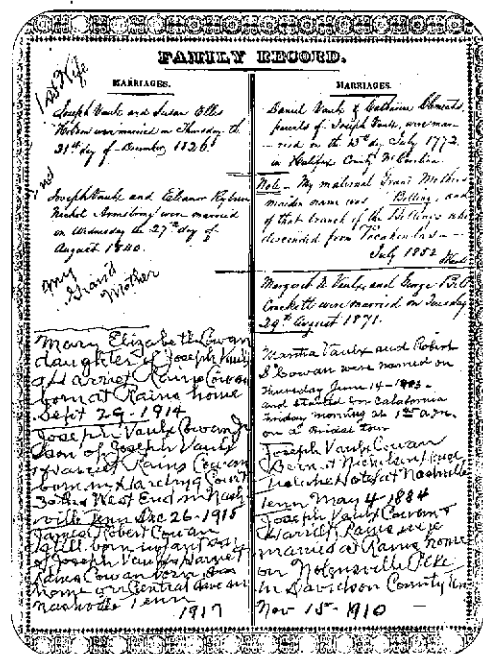 FAMILY RECORD.
MARRIAGES.
1st Wife
Joseph Vaulx and Susan
were married on Thursday the
21st day of December 1826.
2nd
Joseph Vaulx and Eleanor Ryburn
Nichol Armstrong were married
on Wednesday the 27th day of
August 1840.
My
Grand
Mother
Mary Elizabeth Cowan
daughter of Joseph Vaulx
& Harriet Rains Cowan
born at Rains home
Sept 29-1914
Joseph Vaulx Cowan Jr
son of Joseph Vaulx
& Harriet Rains Cowan
born in Harding Court
West End in Nash
ville Tenn Dec 26-1915
James Robert Cowan
still born infant son
of Joseph Vaulx & Harriet
Rains Cowan born
home on Central Ave in
Nashville Tenn
1917
MARRIAGES.
Daniel Vaulx & Catharine
parents of Joseph Vaulx, were mar-
-ried on the day July 1772
in Halifax County No Carolina
Note - My maternal Grand Mothers
maiden name was Bolling, and
of that branch of the Bollings who
descended from Pocahontas -
July 1852
Margaret Vaulx and George
Crockett were married on Tuesday
29th August 1871.
Martha Vaulx and Robert
Cowan were married on
Thursday June 14-1883-
and started for
Friday morning at
on a bridal tour
Joseph Vaulx Cowan
Born at Nicholson
Hotel at Nashville
Tenn May 4-1884
Joseph Vaulx Cowan &
Harriet Rains were
married at Rains home
on Nolensville Pike
in Davidson County Tenn
Nov 15-1910